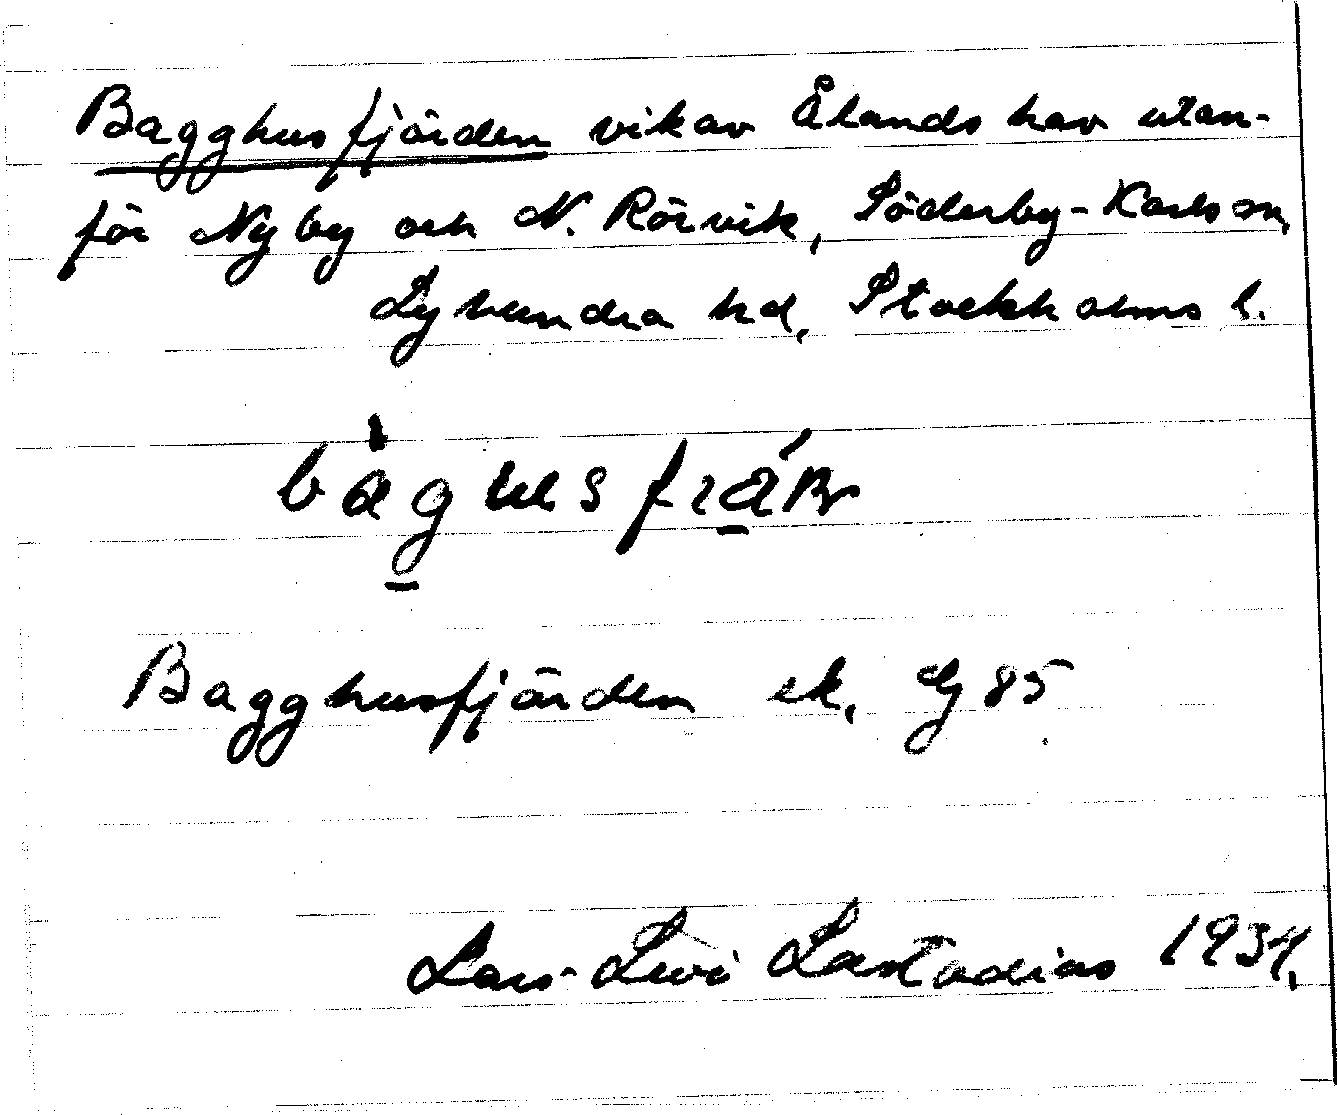 Bagghusfjärden vik av Ålands hav utan-
för Nyby och N. Rörvik, Söderby-Karls sn,
Lyhundra hd, Stockholms l.
Bagghusfjärden ek.
Lars-Levi Læstadius 1934.